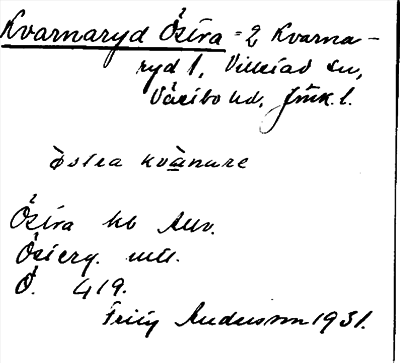 Kvarnaryd Östra = 2 Kvarna-
ryd 1, Villstad sn,
Västbo hd, Jönk. l.
östra kvànare
Östra hb Allv.
Österg. mll.
Ö. 419.
Andersson 1931.